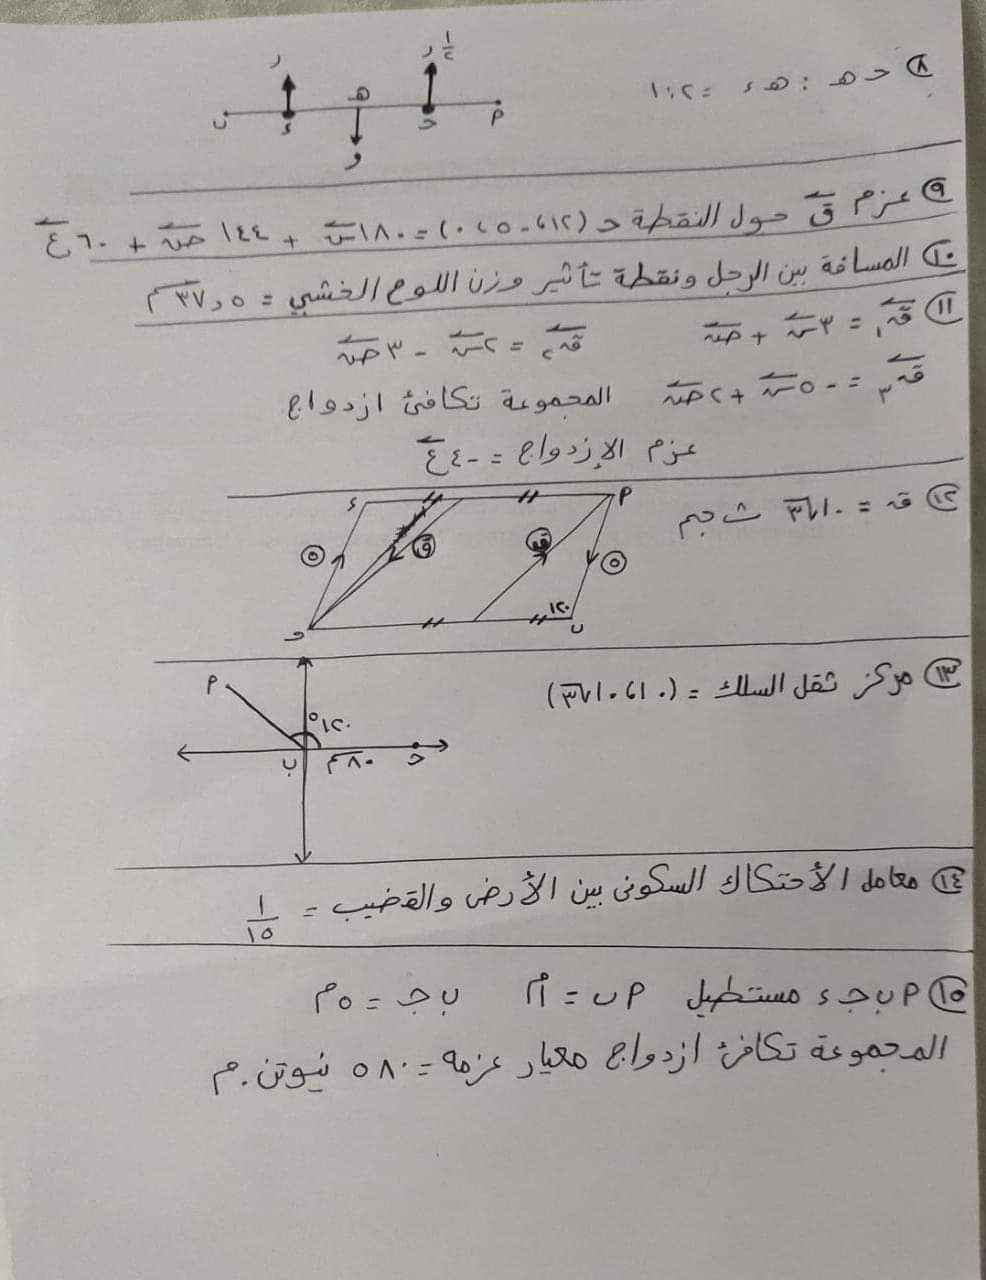 ٨ حـ هـ : هـ ء = ٢ : ١
ر
١/٢ ر
ب ء هـ حـ P
و
٩ عزم ق حول النقطة حـ (١٢، -٥، ٢٠) = ١٨٠ س + ١٤٤ ص + ٦٠ ع
١٠ المسافة بين الرجل ونقطة تأثير وزن اللوح الخشبي = ٣٧,٥ سم
١١ قہ١ = ٣ س + ص قہ٢ = ٢ س - ٣ ص
قہ٣ = -٥ س + ٢ ص المجموعة تكافئ ازدواج
عزم الإزدواج = -٤ ع
١٢ قہ = ١٠√٣ ث جم
ء P
٥ ق قہ ٥
١٢٠
حـ ب
١٣ مركز ثقل السلك = (١٠، ١٠√٣)
P
١٢٠°
ب ٨٠سم حـ
١٤ معامل الأحتكاك السكونى بين الأرض والقضيب = ١/١٥
١٥ P ب جـ ء مستطيل P ب = ٦م ب جـ = ٥م
المجموعة تكافئ ازدواج معيار عزمه = ٥٨٠ نيوتن.م